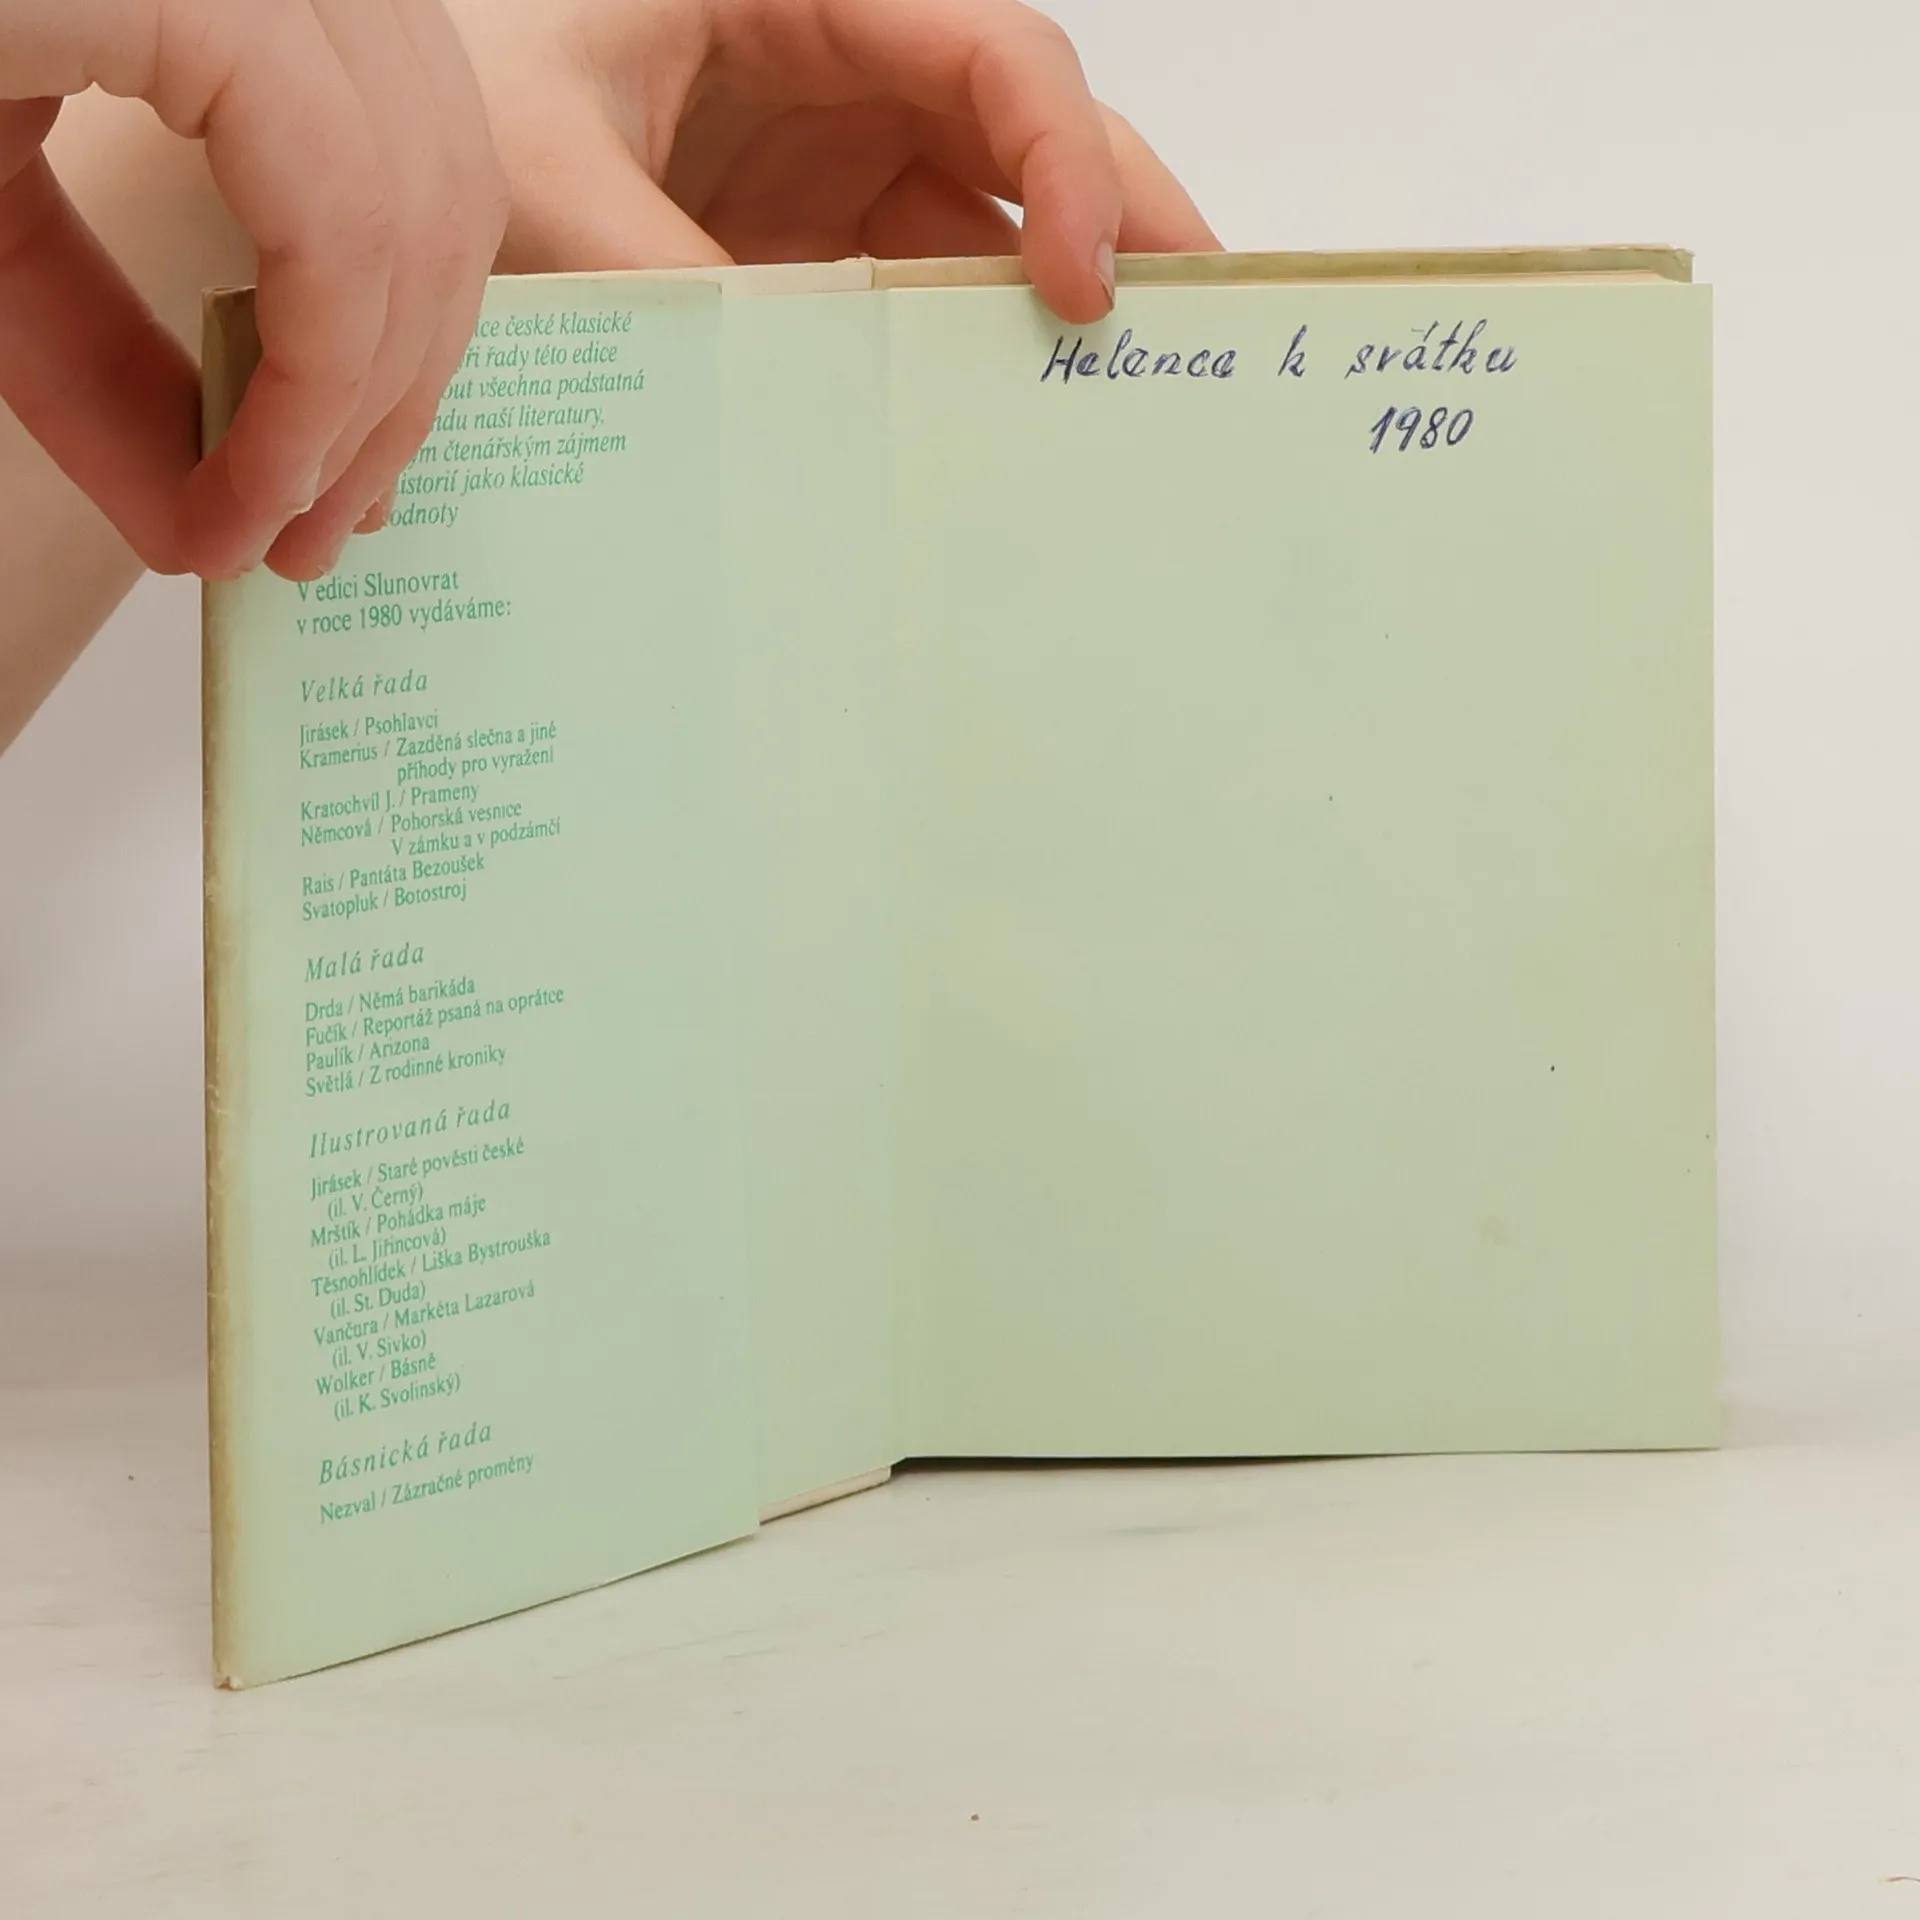 české klasické
řady této edice
všechna podstatná
naší literatury,
čtenářským zájmem
jako klasické
V edici Slunovrat
v roce 1980 vydáváme:
Velká řada
Jirásek / Psohlavci
Kramerius / Zazděná slečna a jiné
příhody pro vyražení
Kratochvíl J. / Prameny
Němcová / Pohorská vesnice
V zámku a v podzámčí
Rais / Pantáta Bezoušek
Svatopluk / Botostroj
Malá řada
Drda / Němá barikáda
Fučík / Reportáž psaná na oprátce
Paulík / Arizona
Světlá / Z rodinné kroniky
Ilustrovaná řada
Jirásek / Staré pověsti české
(il. V. Černý)
Mrštík / Pohádka máje
(il. L. Jiřincová)
Těsnohlídek / Liška Bystrouška
(il. St. Duda)
Vančura / Markéta Lazarová
(il. V. Sivko)
Wolker / Básně
(il. K. Svolinský)
Básnická řada
Nezval / Zázračné proměny
Helence k svátku
1980